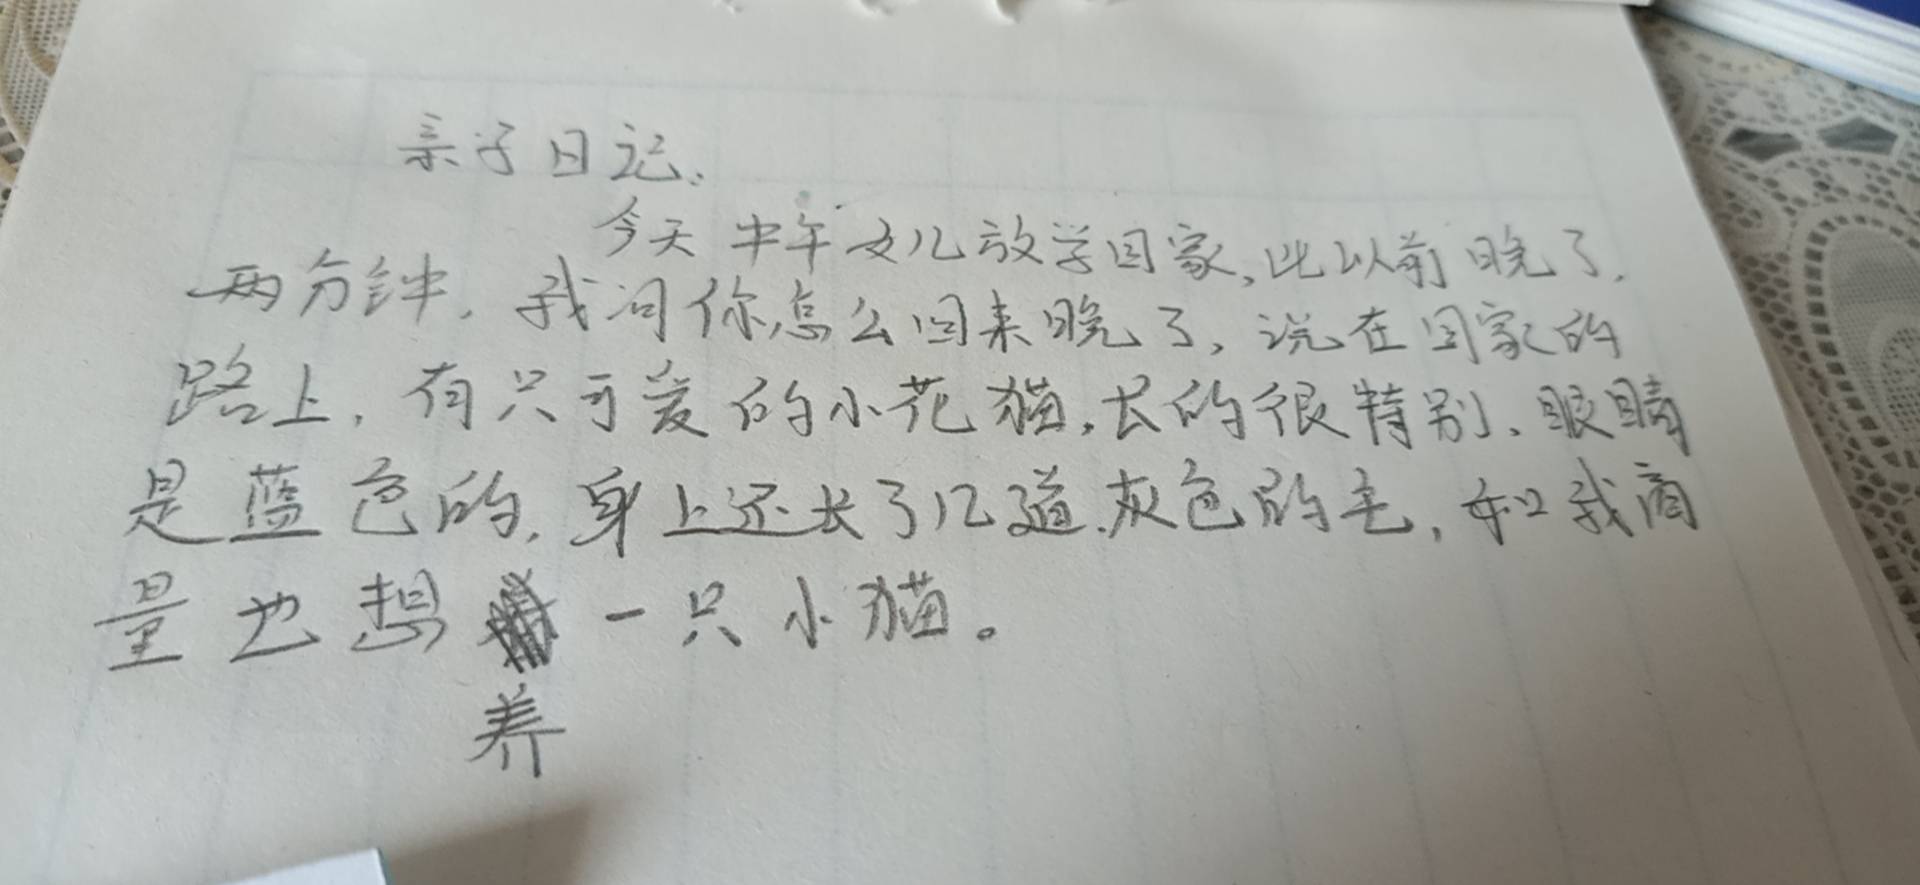 亲子日记:
今天中午女儿放学回家,比以前晚了
两分钟,我问你怎么回来晚了,说在回家的
路上,有只可爱的小花猫,长的很特别、眼睛
是蓝色的,身上还长了几道灰色的毛,和我商
量也想一只小猫。
养